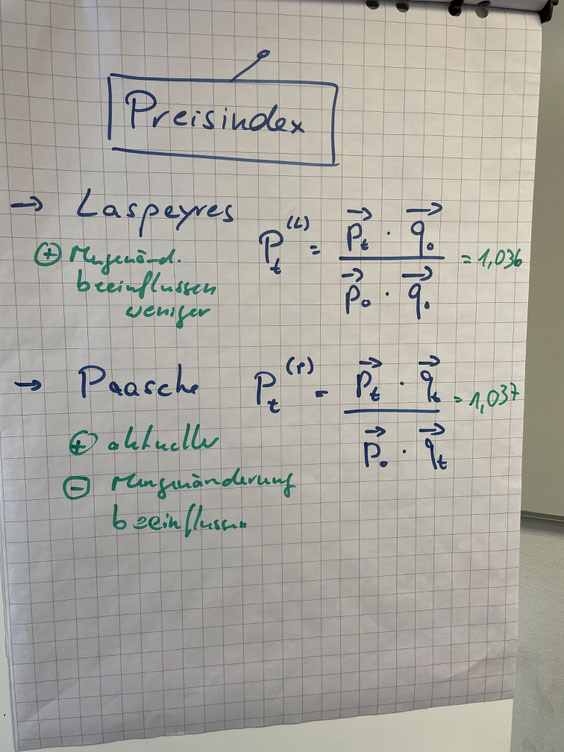 Preisindex
→ Laspeyres P_t^(L) = (p_t→ · q_0→) / (p_0→ · q_0→) = 1,036
⊕ Mengenänd.
beeinflussen
weniger
→ Paasche P_t^(P) = (p_t→ · q_t→) / (p_0→ · q_t→) = 1,037
⊕ aktueller
⊖ Mengenänderung
beeinflussen